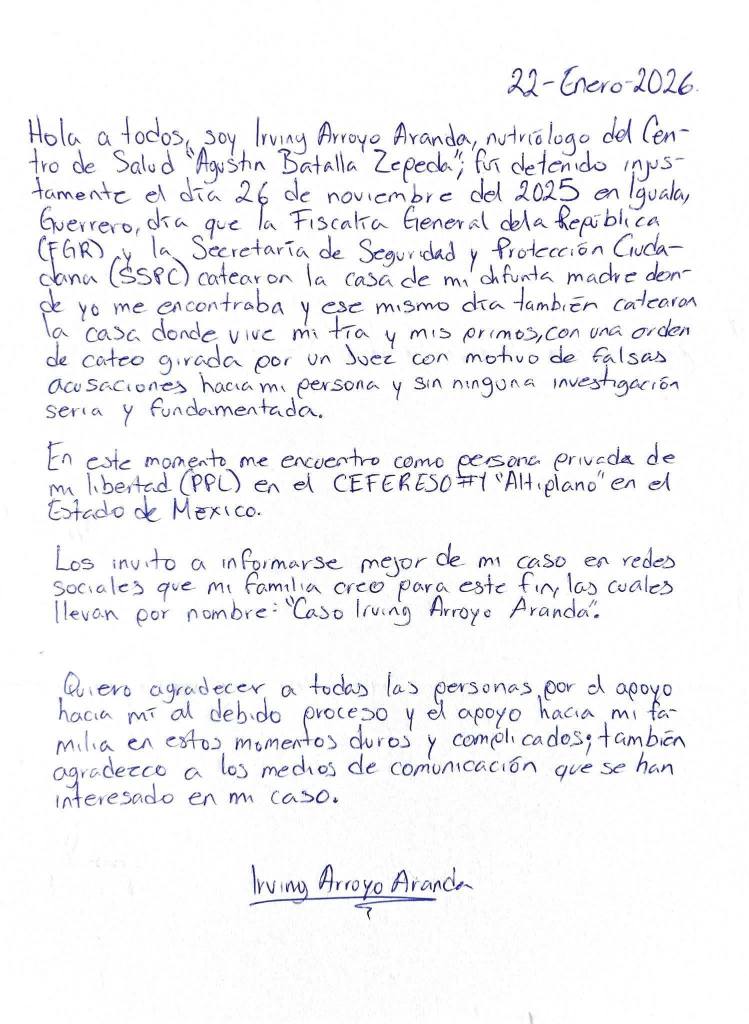 22-Enero-2026.
Hola a todos, soy Irving Arroyo Aranda, nutriólogo del Cen-
tro de Salud "Agustin Batalla Zepeda"; fui detenido injus-
tamente el día 26 de noviembre del 2025 en Iguala,
Guerrero, día que la Fiscalía General dela República
(FGR) y la Secretaría de Seguridad y Protección Ciuda-
dana (SSPC) catearon la casa de mi difunta madre don-
de yo me encontraba y ese mismo día también catearon
la casa donde vive mi tía y mis primos, con una orden
de cateo girada por un Juez con motivo de falsas
acusaciones hacia mi persona y sin ninguna investigación
seria y fundamentada.
En este momento me encuentro como persona privada de
mi libertad (PPL) en el CEFERESO #1 "Altiplano" en el
Estado de México.
Los invito a informarse mejor de mi caso en redes
sociales que mi familia creo para este fin, las cuales
llevan por nombre: "Caso Irving Arroyo Aranda".
Quiero agradecer a todas las personas por el apoyo
hacia mí al debido proceso y el apoyo hacia mi fa-
milia en estos momentos duros y complicados; también
agradezco a los medios de comunicación que se han
interesado en mi caso.
Irving Arroyo Aranda